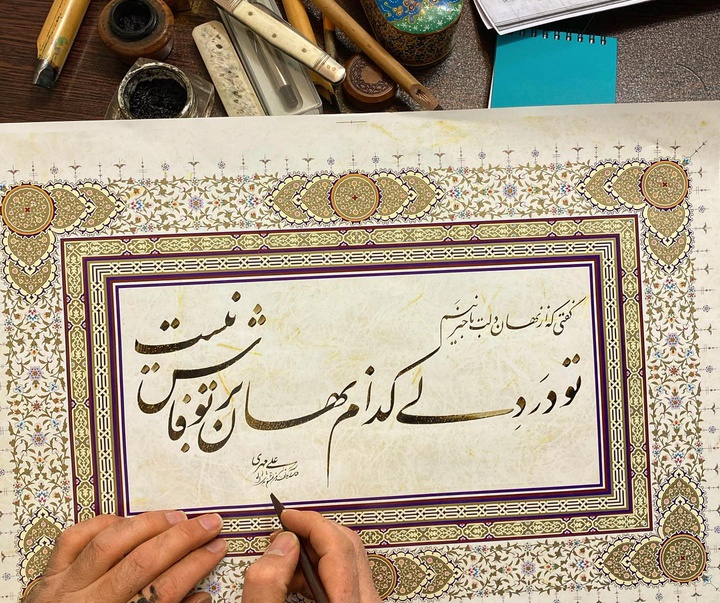 گفتی که از نهان دلت باخبر نیم
تو در دلی کدام نهان بر تو فاش نیست
علی مهدی